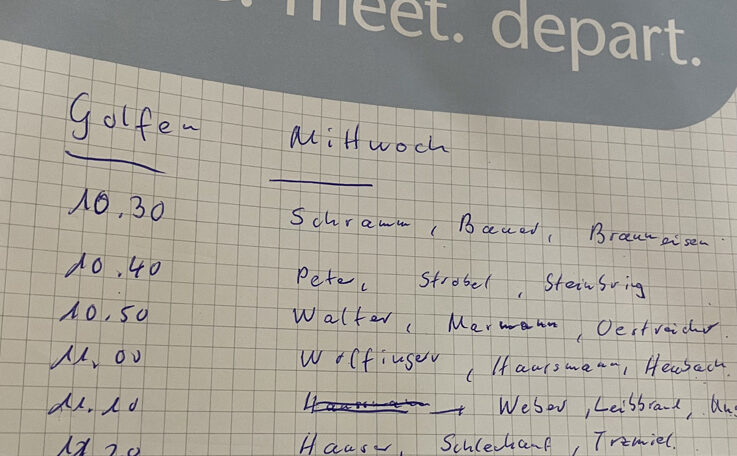 meet. depart.
Golfen Mittwoch
10.30 Schramm, Bauer, Brauneisen
10.40 Peter, Strobel, Steinbrig
10.50 Walter, Marmann, Oestreicher
11.00 Wolfinger, Haussmann, Heubach
11.10 Weber, Leibbrand,
11.20 Hauser, Schlechauf, Trzmiel.